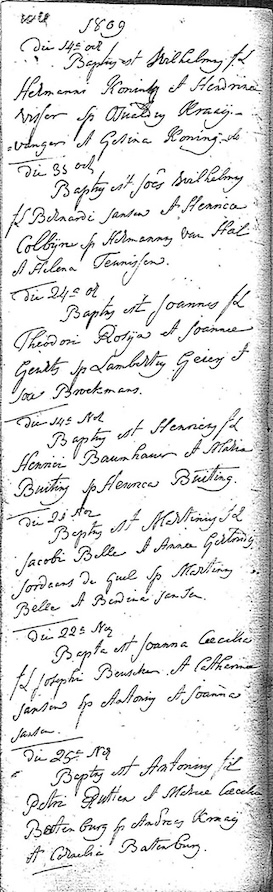 1809
die 14a oct
Baptus est Wilhelmus f L
Hermanni Koning et Hendrina
Visser sp Everardus Kraaij-
vanger et Gesina Koning
die 23 oct
Baptus est Joes Wilhelmus
f L Bernardi Jansen et Henrica
Colbijne sp Hermannus van Hal
et Helena Teunissen.
die 24a oct
Baptus est Joannes f L
Theodori Rosija et Joannae
Geurts sp Lambertus et
Joa Broekmans.
die 14a Nov
Baptus est Henricus f L
Henrici Baumhauer et Maria
Buiting sp Henrica Buiting.
die 21 Nov
Baptus est Martinus f L
Jacobi Belle et Annae Gertrudis
Jordaens de Guel sp Martinus
Belle et Berdina Jansen.
die 22a Nov
Bapta est Joanna Caecilia
f L Josephi Beusken et Catharina
Jansen sp Antonius et Joanna
Jansen.
die 25a Nov
Baptus est Antonius fil
Petri Rutten et Mariae Caecilia
Batenburg sp Andreas Kraaij
et Cornelia Batenburg.